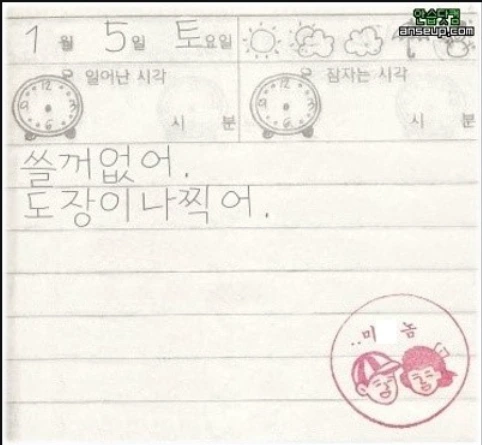 안습닷컴
anseup.com
1월 5일 토요일
일어난 시각 잠자는 시각
12 12
6 6
시 분 시 분
쓸꺼없어.
도장이나찍어.
..미 놈